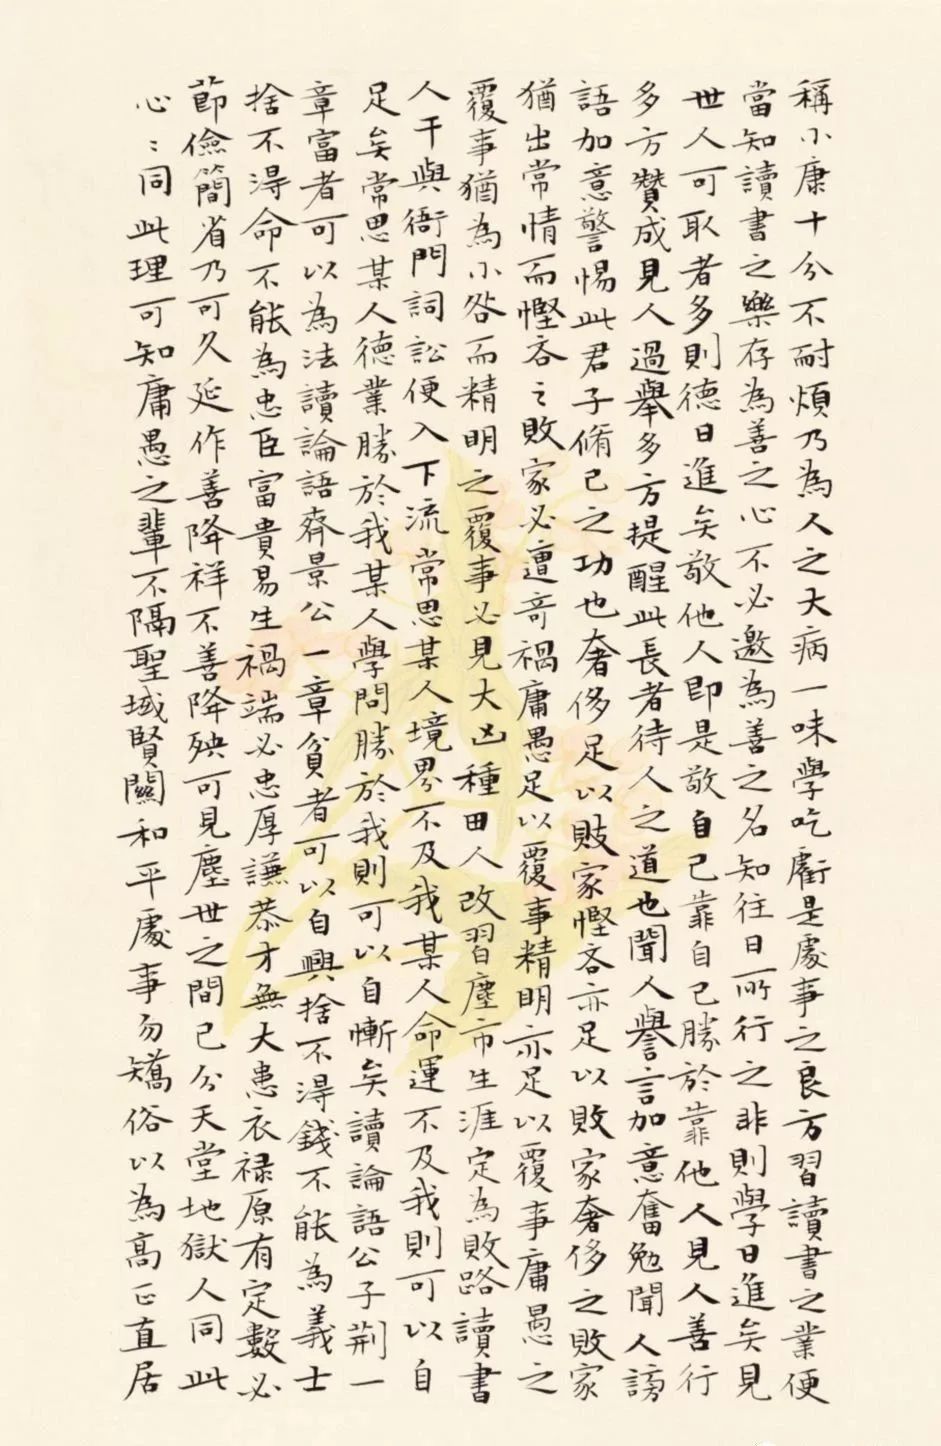 稱小康十分不耐煩乃為人之大病一味學吃虧是處事之良方習讀書之業便
當知讀書之樂存為善之心不必邀為善之名知往日所行之非則學日進矣見
世人可取者多則德日進矣敬他人即是敬自己靠自己勝於靠他人見人善行
多方贊成見人過舉多方提醒此長者待人之道也聞人譽言加意奮勉聞人謗
語加意警惕此君子脩己之功也奢侈足以敗家慳吝亦足以敗家奢侈之敗家
猶出常情而慳吝之敗家必遭奇禍庸愚足以覆事精明亦足以覆事庸愚之
覆事猶為小咎而精明之覆事必見大凶種田人改習塵市生涯定為敗路讀書
人干與衙門詞訟便入下流常思某人境界不及我某人命運不及我則可以自
足矣常思某人德業勝於我某人學問勝於我則可以自慚矣讀論語公子荆一
章富者可以為法讀論語齊景公一章貧者可以自興捨不得錢不能為義士
捨不得命不能為忠臣富貴易生禍端必忠厚謙恭才無大患衣禄原有定數必
節儉簡省乃可久延作善降祥不善降殃可見塵世之間已分天堂地獄人同此
心〻同此理可知庸愚之輩不隔聖域賢關和平處事勿矯俗以為高正直居